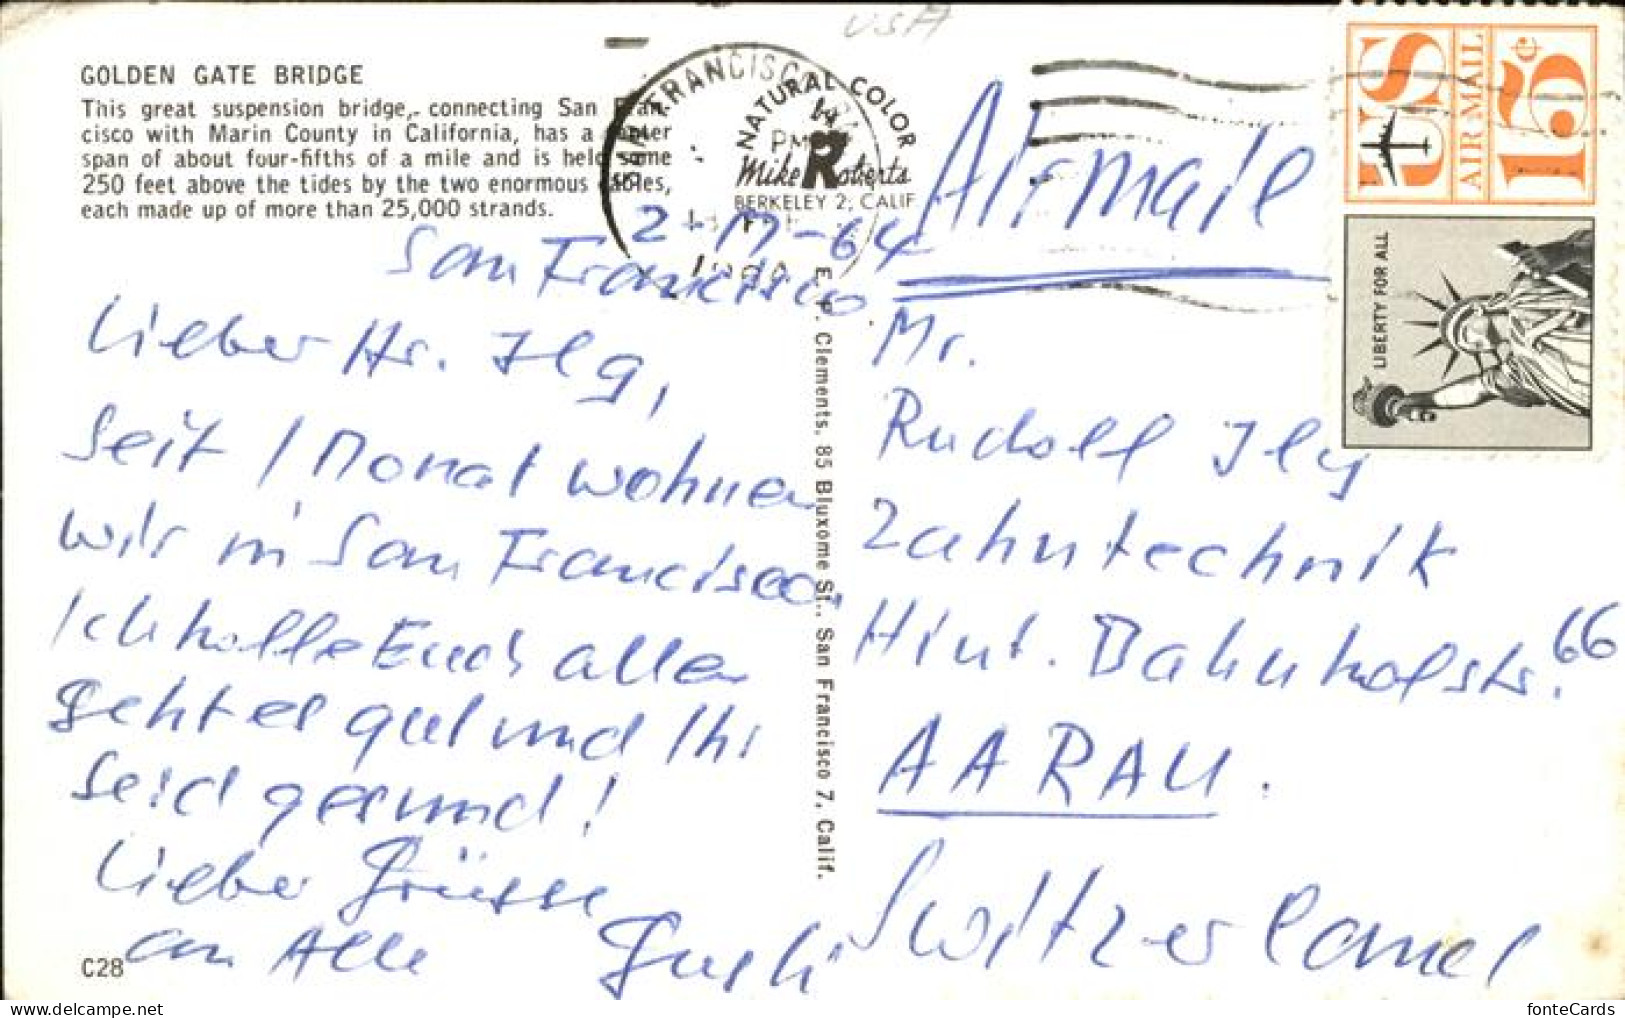 USA
GOLDEN GATE BRIDGE
This great suspension bridge, connecting San Fran-
cisco with Marin County in California, has a center
span of about four-fifths of a mile and is held some
250 feet above the tides by the two enormous cables,
each made up of more than 25,000 strands.
SAN FRANCISCO
PM
NATURAL COLOR
by
Mike Roberts
BERKELEY 2, CALIF.
US
AIR MAIL
15¢
LIBERTY FOR ALL
Airmail
San Francisco
Lieber Hr. Ilg,
Seit 1 Monat wohnen
wir in San Francisco
Ich hoffe Euch allen
geht es gut und Ihr
seid gesund!
Lieber Grüsse
an Alle
C28
Clements, 85 Bluxome St., San Francisco 7, Calif.
Mr.
Rudolf Ilg
Zahntechnik
Hint. Bahnhofstr. 66
AARAU.
Switzerland
fonteCards